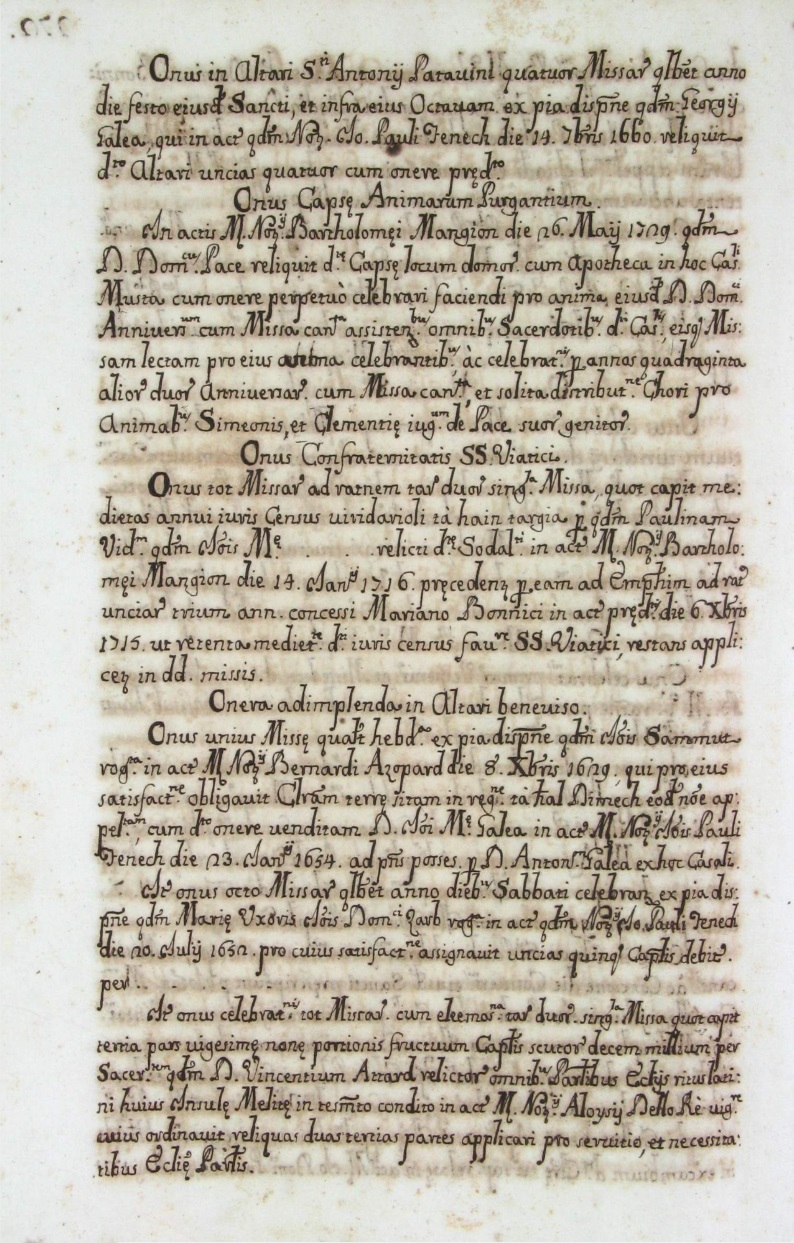 Onus in Altari S.ti Antonij Patavini quatuor Missar̃ qlbet anno
die festo eiusd̃ Sancti, et infra eius Octavam ex pia dispñe qdm̃ Georgij
Galea, qui in act̃ qdm̃ Noȝ. Jo. Pauli Fenech die 14. 7bris 1660. reliquit
d.to Altari uncias quatuor cum onere pręd.to
Onus Capsę Animarum Purgantium.
In actis M. Noȝ.ij Bartholomęi Mangion die 26. Maij 1729. qdm̃
D. Dom.cus Pace reliquit d.ę Capsę locum domor̃ cum apotheca in hoc Cas.li
Musta cum onere perpetuò celebrari faciendi pro anima eiusd̃ D. Dom.ci
Anniver.um cum Missa can.ta assisten.bus omnib.us Sacerdotib.us d.i Cas.lis, eisq̃ Mis:
sam lectam pro eius anima celebrantib.us, àc celebrat.ni p annos quadraginta
alior̃ duor̃ Anniversar̃. cum Missa can.ta, et solita distribut.ne Chori pro
Animab.us Simeonis, et Clementię iug.um de Pace suor̃ genitor̃.
Onus Confraternitatis SS. Viatici.
Onus tot Missar̃ ad ratnem tar̃ duor̃ sing.a Missa, quot capit me:
dietas annui iuris Census viridarioli tà hain targia p qdm̃ Paulinam
Vid.m qdm̃ Jois M.ę . . relicti d.ę Sodal.ti in act̃ M. Noȝ.ij Bartholo:
męi Mangion die 14. Jan.ij 1716. pręcedenȝ p eam ad Emphim ad rat̃
unciar̃ trium ann. concessi Mariano Bonnici in act̃ pręd.is die 6. Xbris
1715. ut retenta mediet.te d.i iuris census fav.re SS. Viatici, restans appli:
ceȝ in dd. missis.
Onera adimplenda in Altari beneviso.
Onus unius Missę qualt hebd.a ex pia dispñe qdm̃ Jois Sammut
rog.ta in act̃ M. Noȝ.ij Bernardi Azopard die 8. Xbris 1629. qui pro eius
satisfact.ne obligavit Clram̃ terrę sitam in reg.ne tà ħal Dimech eod̃ nõe ap:
pel.tam, cum d.to onere venditam D. Joi M.ę Galea in act̃ M. Noȝ.ij Jois Pauli
Fenech die 23. Jan.ij 1654. ad pñs posses. p D. Anton. Galea ex hoc Casali.
It̃ onus octo Missar̃ qlbet anno dieb.us Sabbati celebranȝ ex pia dis:
pñe qdm̃ Marię Uxoris Jois Dom.ci Zarb rog.ta in act̃ qdm̃ Noȝ.ij Jo. Pauli Fenech
die 20. Julij 1652. pro cuius satisfact.ne assignavit uncias quinq̃ Capłis debit.
per . .
It̃ onus celebrat.nis tot Missar̃. cum elemos.na tar̃ duor̃. sing.la Missa quot capit
tertia pars vigesimę nonę portionis fructuum Capłis scutor̃ decem millium per
Sacer.tem qdm̃ D. Vincentium Attard relictor̃ omnib.us Parłibus Ecłijs ritus lati:
ni huius Insulę Melitę in testm̃to condito in act̃ M. Noȝ.ij Aloysij Dello Rè vig.re
cuius ordinavit reliquas duas tertias partes applicari pro servitio, et necessita:
tibus Ecłię Parłis.